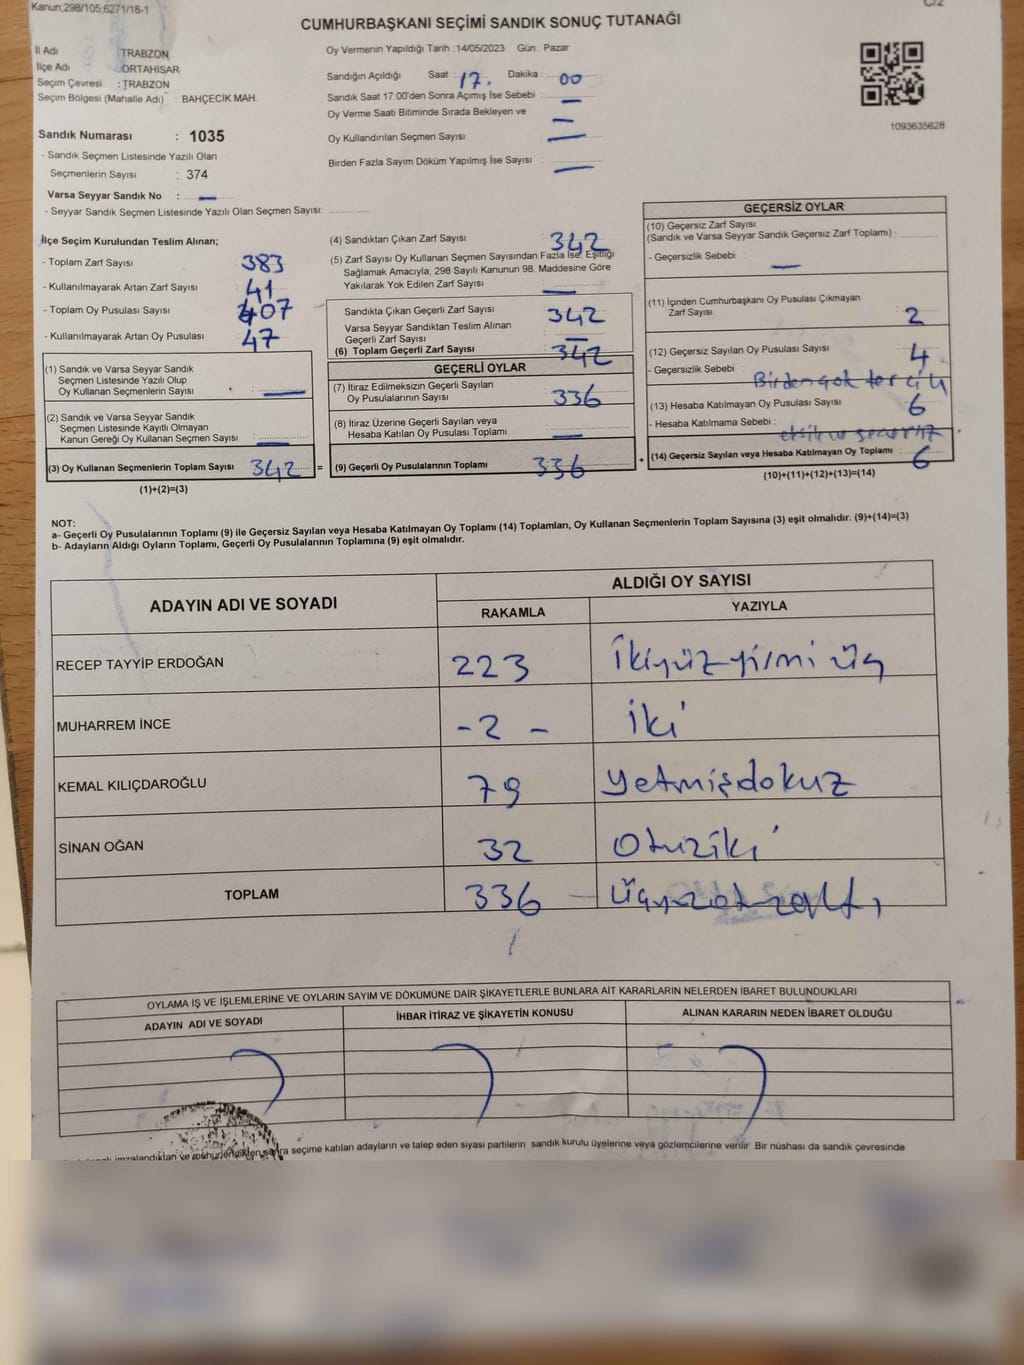 Kanun;298/105;6271/18-1
C/2
CUMHURBAŞKANI SEÇİMİ SANDIK SONUÇ TUTANAĞI
İl Adı : TRABZON
İlçe Adı : ORTAHİSAR
Seçim Çevresi : TRABZON
Seçim Bölgesi (Mahalle Adı) : BAHÇECİK MAH.
Oy Vermenin Yapıldığı Tarih :14/05/2023 Gün : Pazar
Sandığın Açıldığı Saat : 17. Dakika : 00
Sandık Saat 17:00'den Sonra Açımış İse Sebebi : —
Oy Verme Saati Bitiminde Sırada Bekleyen ve
Oy Kullandırılan Seçmen Sayısı : —
Birden Fazla Sayım Döküm Yapılmış İse Sayısı : —
1093635628
Sandık Numarası : 1035
- Sandık Seçmen Listesinde Yazılı Olan
Seçmenlerin Sayısı : 374
Varsa Seyyar Sandık No : —
- Seyyar Sandık Seçmen Listesinde Yazılı Olan Seçmen Sayısı:
İlçe Seçim Kurulundan Teslim Alınan;
- Toplam Zarf Sayısı : 383
- Kullanılmayarak Artan Zarf Sayısı : 41
- Toplam Oy Pusulası Sayısı : 407
- Kullanılmayarak Artan Oy Pusulası : 47
(1) Sandık ve Varsa Seyyar Sandık
Seçmen Listesinde Yazılı Olup
Oy Kullanan Seçmenlerin Sayısı : —
(2) Sandık ve Varsa Seyyar Sandık
Seçmen Listesinde Kayıtlı Olmayan
Kanun Gereği Oy Kullanan Seçmen Sayısı : —
(3) Oy Kullanan Seçmenlerin Toplam Sayısı : 342 =
(1)+(2)=(3)
(4) Sandıktan Çıkan Zarf Sayısı : 342
(5) Zarf Sayısı Oy Kullanan Seçmen Sayısından Fazla İse, Eşitliği
Sağlamak Amacıyla; 298 Sayılı Kanunun 98. Maddesine Göre
Yakılarak Yok Edilen Zarf Sayısı : —
Sandıkta Çıkan Geçerli Zarf Sayısı : 342
Varsa Seyyar Sandıktan Teslim Alınan
Geçerli Zarf Sayısı : —
(6) Toplam Geçerli Zarf Sayısı : 342
GEÇERLİ OYLAR
(7) İtiraz Edilmeksizin Geçerli Sayılan
Oy Pusulalarının Sayısı : 336
(8) İtiraz Üzerine Geçerli Sayılan veya
Hesaba Katılan Oy Pusulası Toplamı : —
(9) Geçerli Oy Pusulalarının Toplamı : 336 +
GEÇERSİZ OYLAR
(10) Geçersiz Zarf Sayısı
(Sandık ve Varsa Seyyar Sandık Geçersiz Zarf Toplamı) :
- Geçersizlik Sebebi : —
(11) İçinden Cumhurbaşkanı Oy Pusulası Çıkmayan
Zarf Sayısı : 2
(12) Geçersiz Sayılan Oy Pusulası Sayısı : 4
- Geçersizlik Sebebi : Birden çok tercih
(13) Hesaba Katılmayan Oy Pusulası Sayısı : 6
- Hesaba Katılmama Sebebi : eksik ve geçersiz
(14) Geçersiz Sayılan veya Hesaba Katılmayan Oy Toplamı : 6
(10)+(11)+(12)+(13)=(14)
NOT:
a- Geçerli Oy Pusulalarının Toplamı (9) ile Geçersiz Sayılan veya Hesaba Katılmayan Oy Toplamı (14) Toplamları, Oy Kullanan Seçmenlerin Toplam Sayısına (3) eşit olmalıdır. (9)+(14)=(3)
b- Adayların Aldığı Oyların Toplamı, Geçerli Oy Pusulalarının Toplamına (9) eşit olmalıdır.
ADAYIN ADI VE SOYADI
ALDIĞI OY SAYISI
RAKAMLA YAZIYLA
RECEP TAYYİP ERDOĞAN 223 İkiyüzyirmi üç
MUHARREM İNCE - 2 - İki
KEMAL KILIÇDAROĞLU 79 Yetmişdokuz
SİNAN OĞAN 32 Otuziki
TOPLAM 336 - Üçyüzotuzaltı
OYLAMA İŞ VE İŞLEMLERİNE VE OYLARIN SAYIM VE DÖKÜMÜNE DAİR ŞİKAYETLERLE BUNLARA AİT KARARLARIN NELERDEN İBARET BULUNDUKLARI
ADAYIN ADI VE SOYADI İHBAR İTİRAZ VE ŞİKAYETİN KONUSU ALINAN KARARIN NEDEN İBARET OLDUĞU
imzalandıktan ve mühürlendikten sonra seçime katılan adayların ve talep eden siyasi partilerin sandık kurulu üyelerine veya gözlemcilerine verilir. Bir nüshası da sandık çevresinde